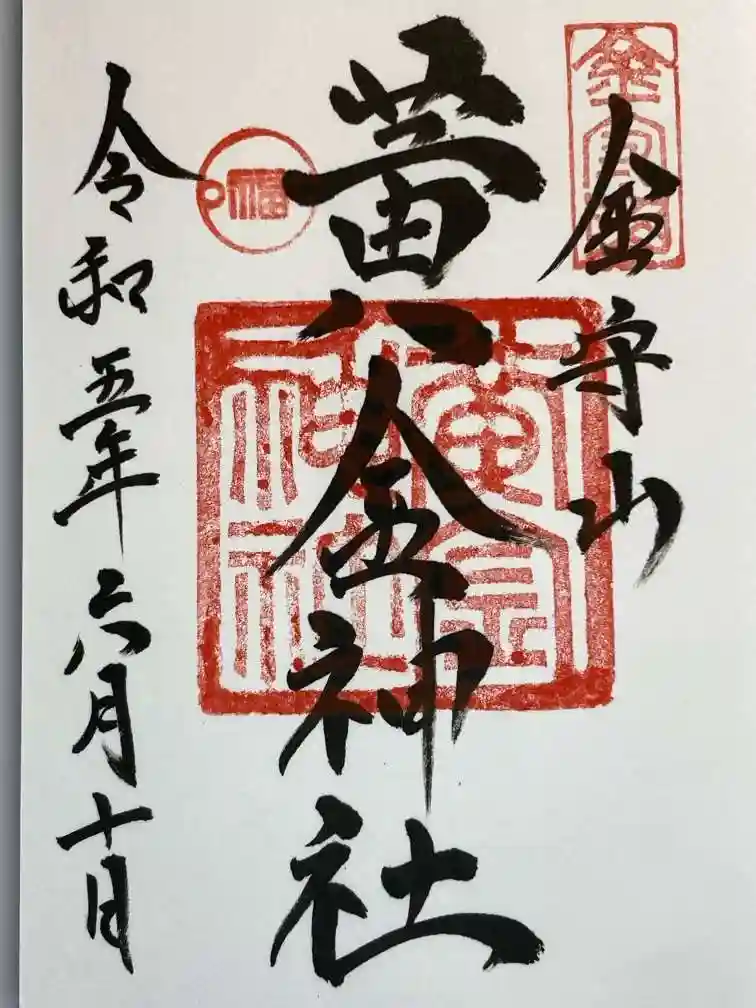 金守山
黄金神社
令和五年六月十日
黄金
神社
福